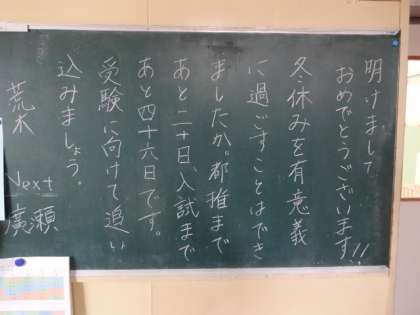 明けまして
おめでとうございます!!
冬休みを有意義
に過ごすことはでき
ましたか。都推まで
あと二十日、入試まで
あと四十六日です。
受験に向けて追い
込みましょう。
荒木
Next
廣瀬